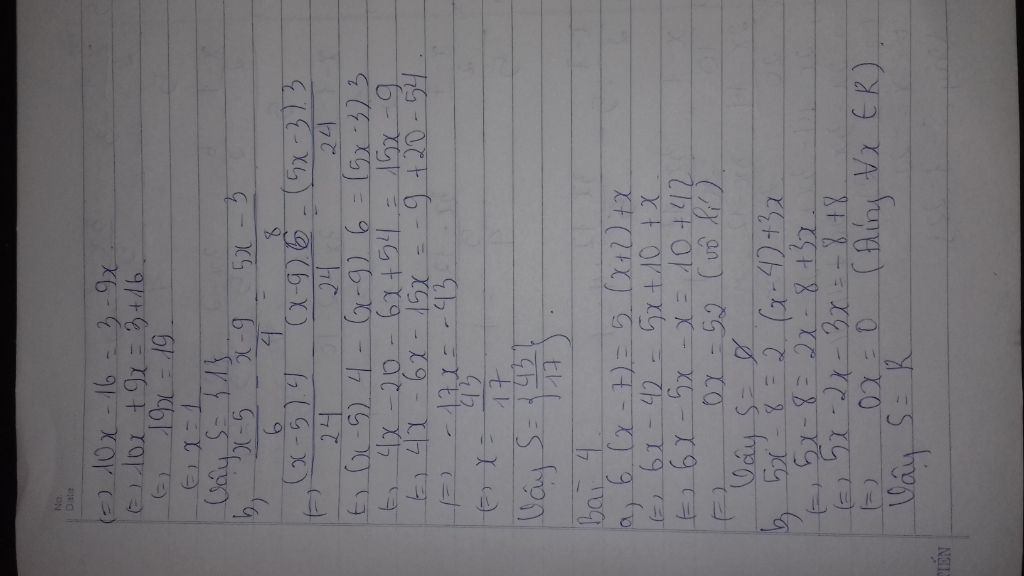 No.
Date
(=) 10x - 16 = 3 - 9x
(=) 10x + 9x = 3 + 16
(=) 19x = 19
(=) x = 1
Vậy S = {1}
b, x-5/6 - x-9/4 = 5x-3/8
(=) (x-5).4/24 - (x-9).6/24 = (5x-3).3/24
(=) (x-5) 4 - (x-9) 6 = (5x-3).3
(=) 4x - 20 - 6x + 54 = 15x - 9
(=) 4x - 6x - 15x = -9 + 20 - 54.
(=) -17x = -43
(=) x = 43/17
Vậy S = {43/17}.
Bài 4
a) 6 (x-7) = 5 (x+2) + x
(=) 6x - 42 = 5x + 10 + x
(=) 6x - 5x - x = 10 + 42
(=) 0x = 52 (vô lí)
Vậy S = ∅
b, 5x - 8 = 2 (x-4) + 3x
(=) 5x - 8 = 2x - 8 + 3x
(=) 5x - 2x - 3x = -8 + 8
(=) 0x = 0 (Đúng ∀x ∈ R)
Vậy S = R
TIẾN